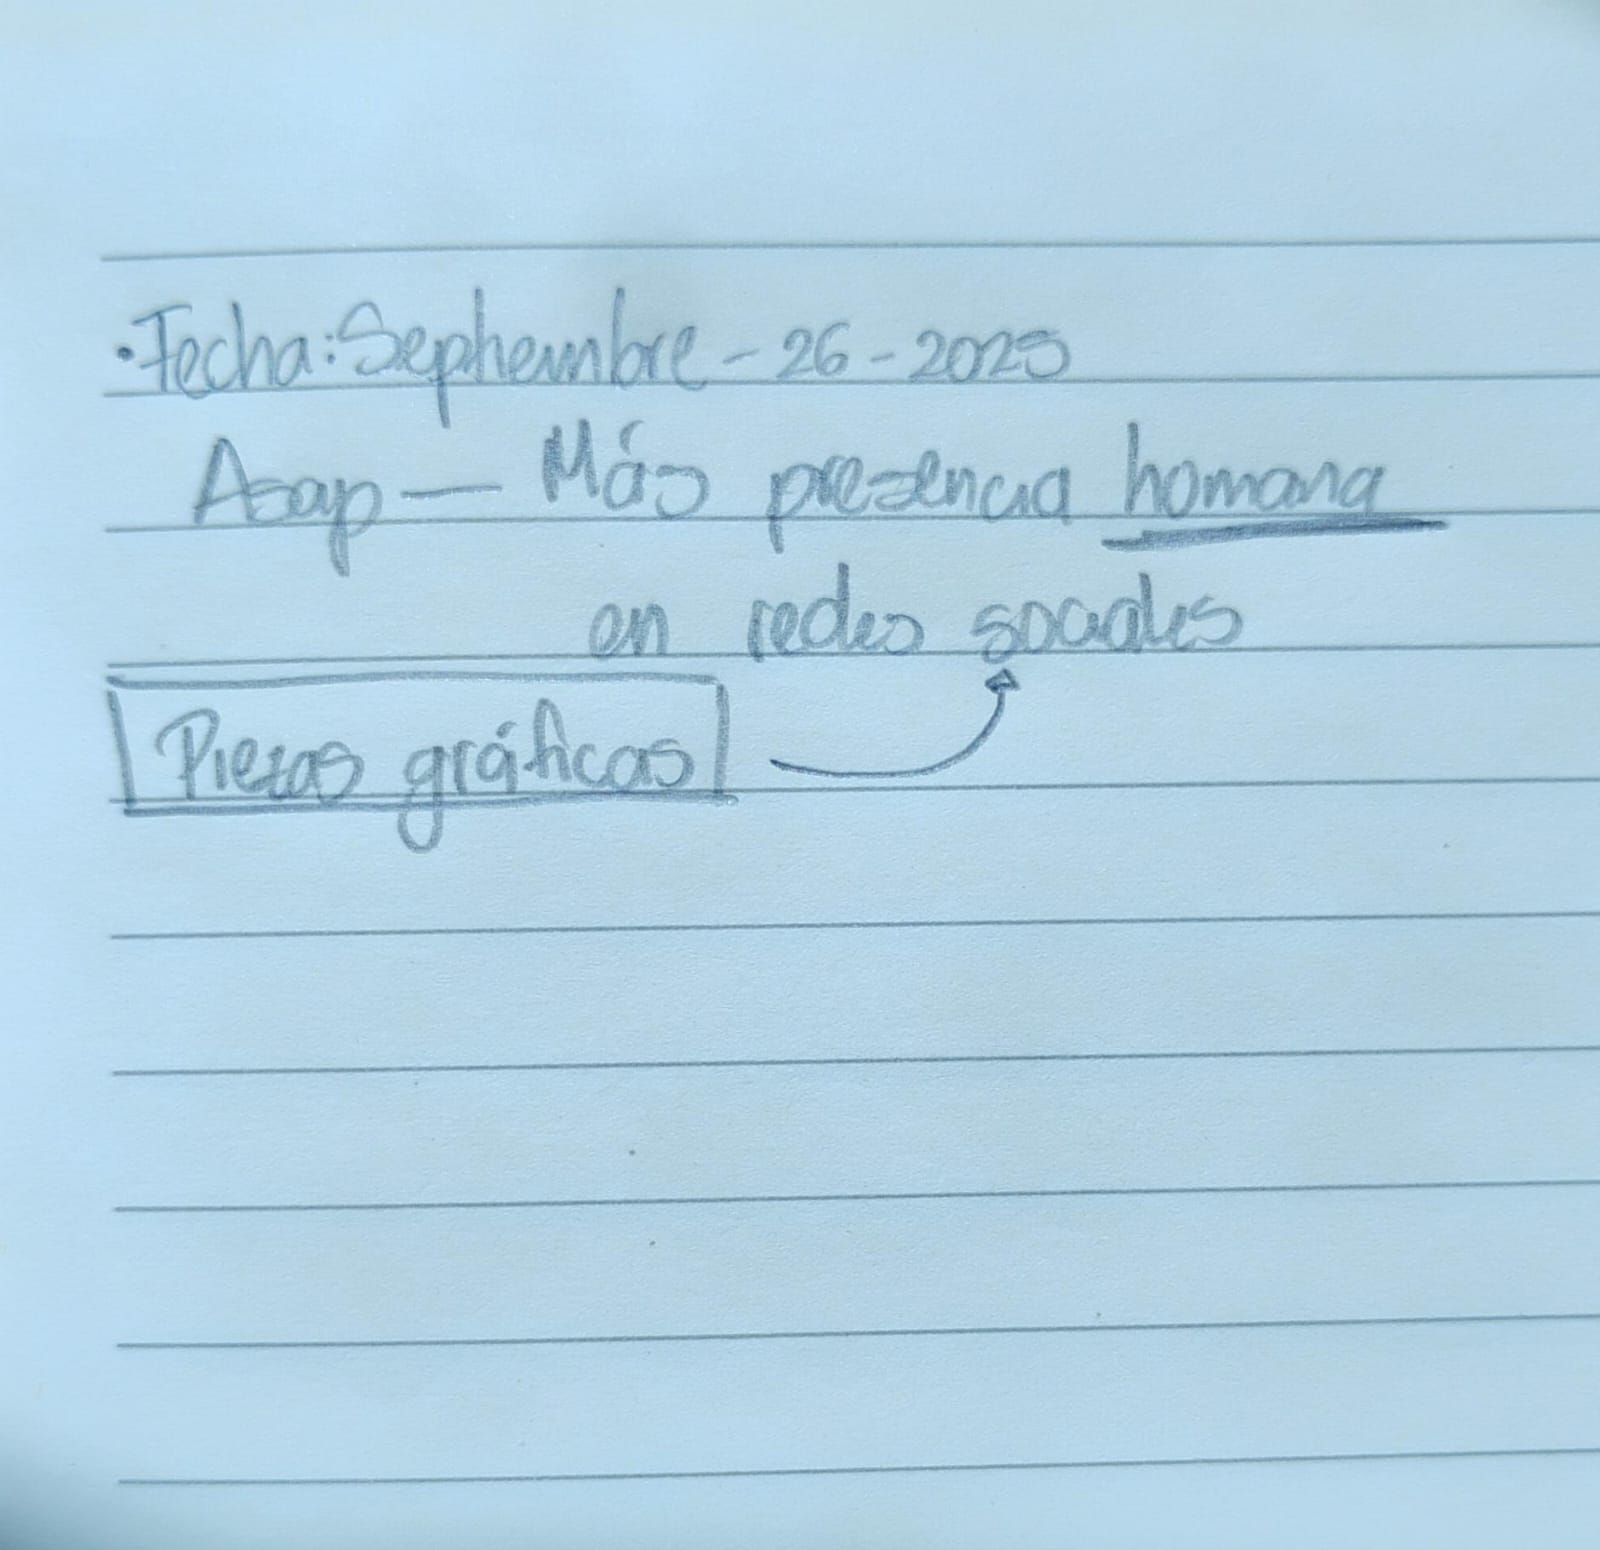 • Fecha: Septiembre - 26 - 2025
Asap — Más presencia humana
en redes sociales
Piezas gráficas